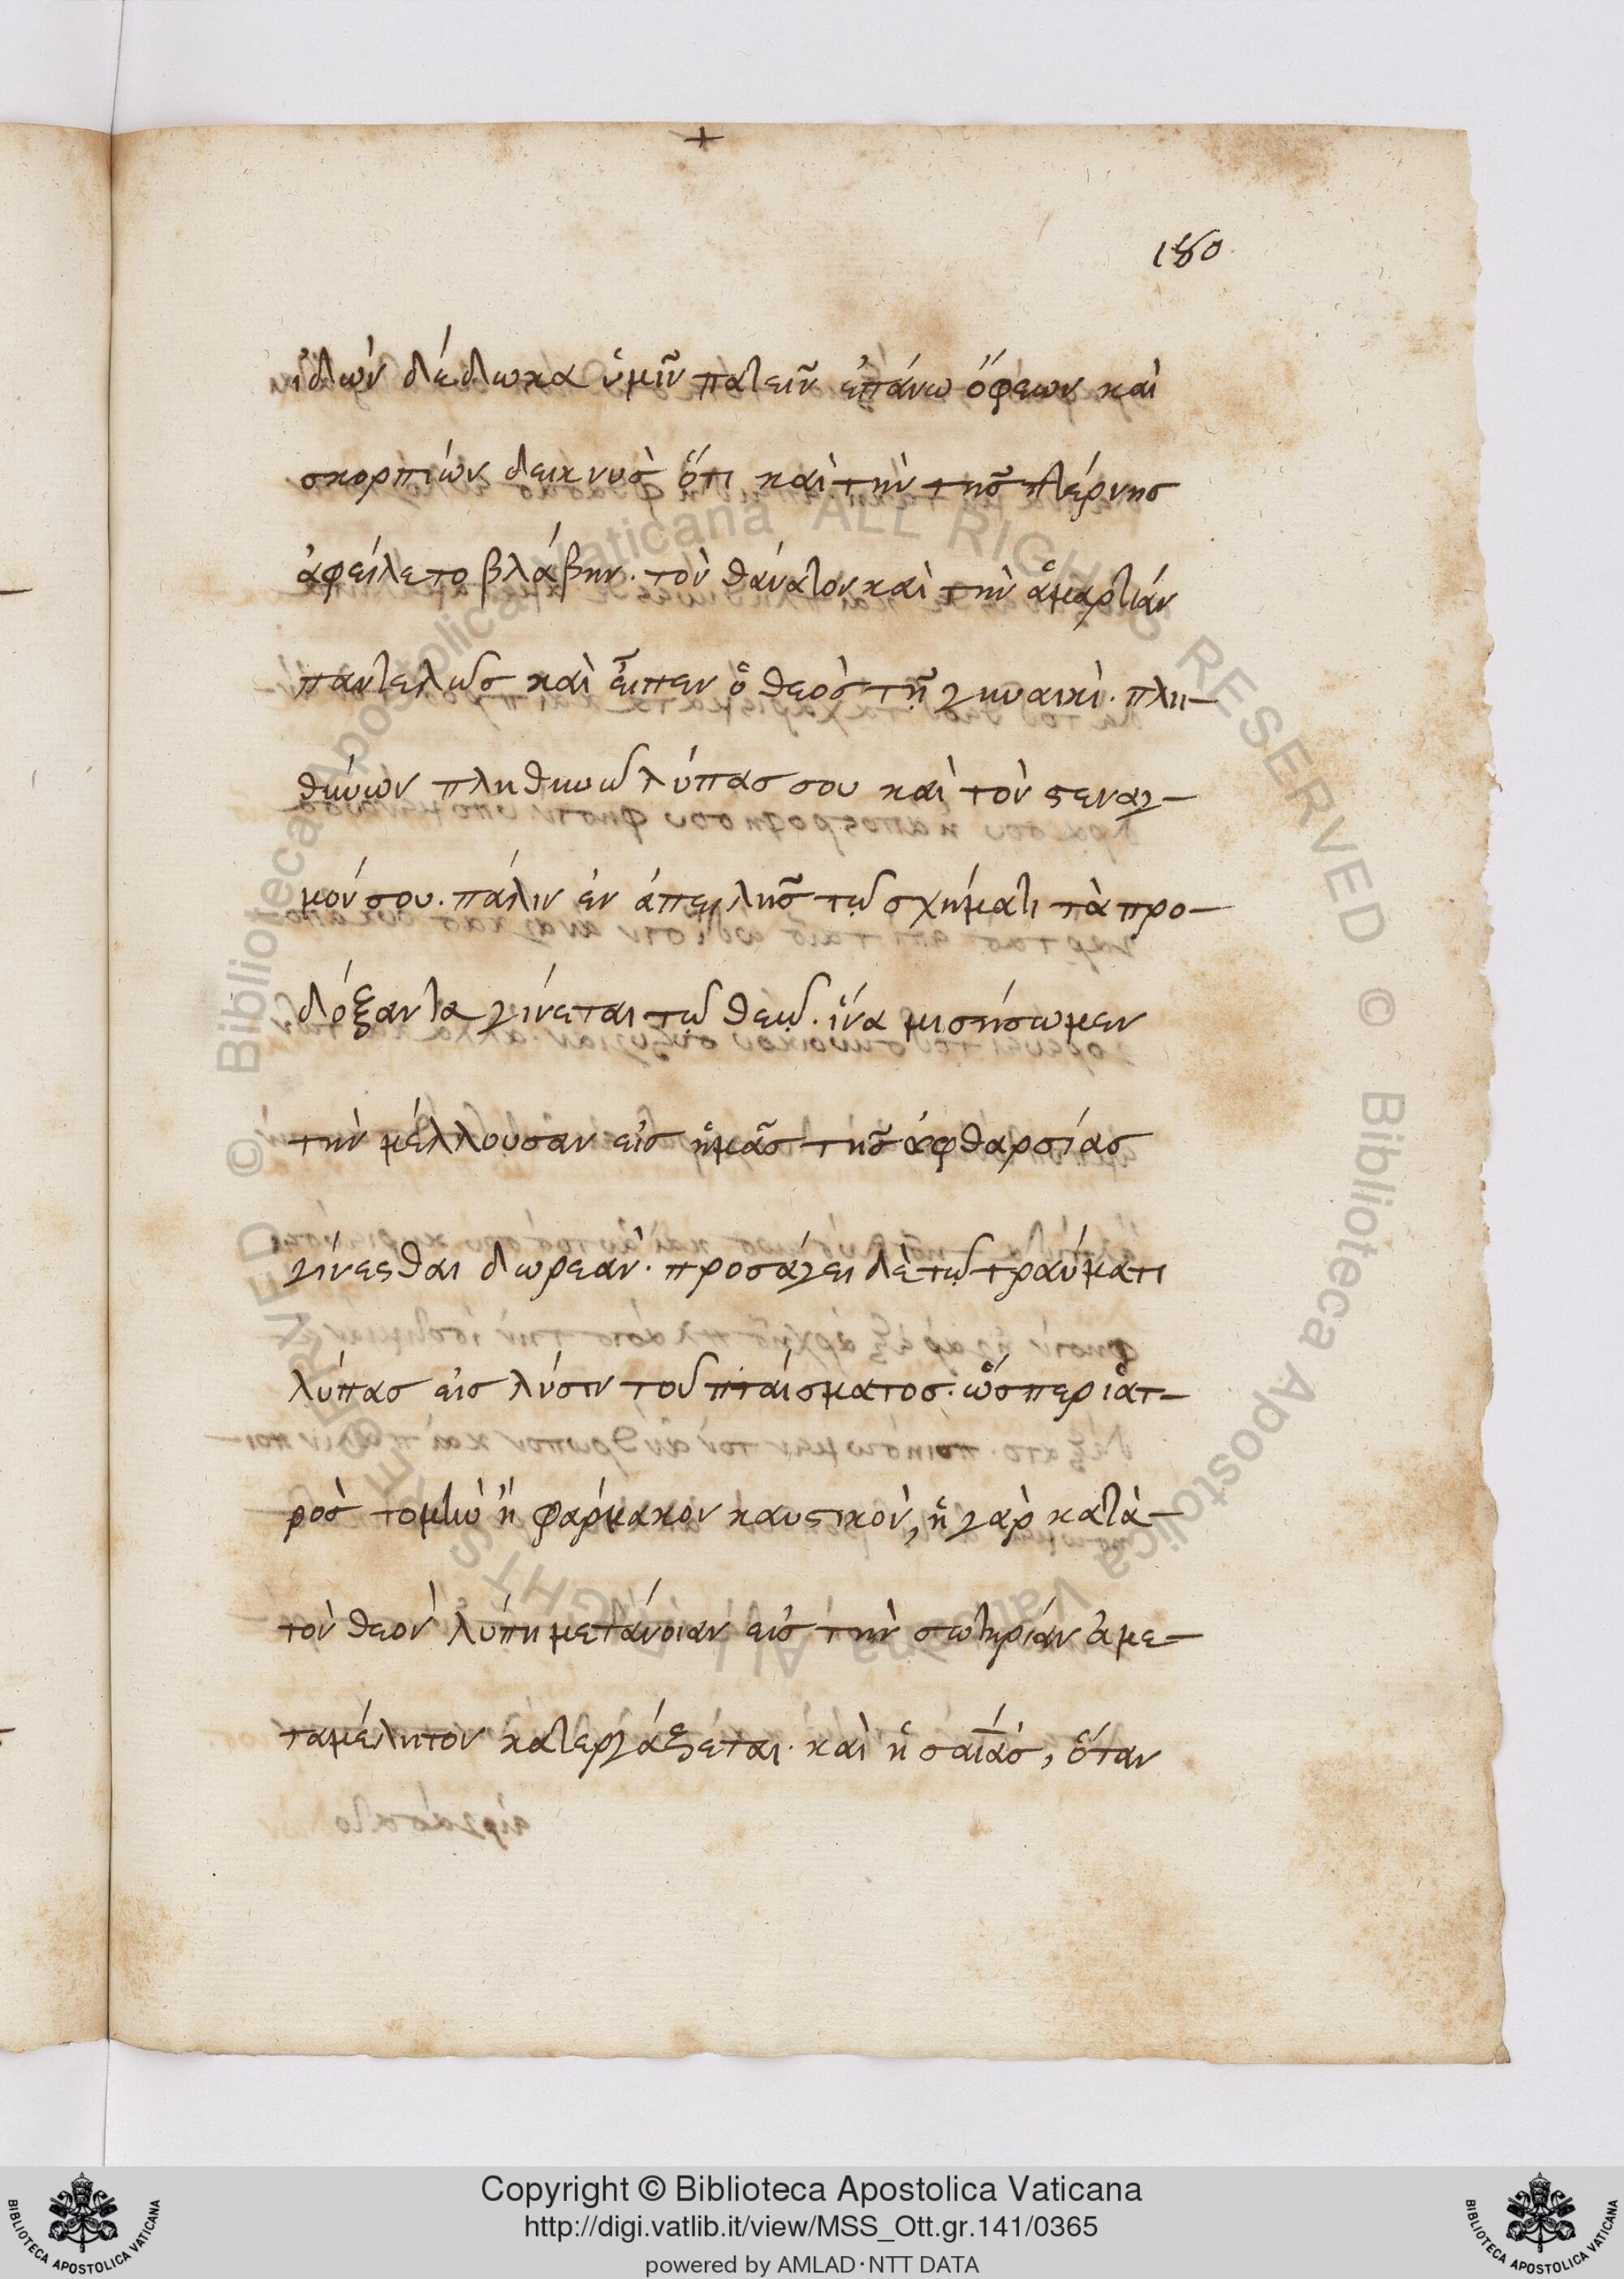 +
180
ἰδὼν δέδωκα ὑμῖν πατεῖν ἐπάνω ὄφεων καὶ
σκορπιών δεικνυσ ὅτι καὶ τὴν τῆσ πτέρνησ
ἀφείλετο βλάβην. τὸν θάνατον καὶ τὴν ἁμαρτίαν
παντελῶσ καὶ εἶπεν ὁ θεὸσ τῇ γυναικὶ. πλη-
θύνων πληθυνῶ λύπασ σου καὶ τὸν στεναγ-
μόν σου. πάλιν ἐν ἀπειλῆσ τῷ σχήματι τὰ προ-
δόξαντα γίνεται τῷ θεῷ. ἵνα μισήσωμεν
τὴν μέλλουσαν εἰσ ἡμᾶσ τῆσ ἀφθαρσίασ
γίνεσθαι δωρεαν. προσάγει δὲ τῷ τραύματι
λύπασ εἰσ λύσιν τοῦ πταίσματοσ. ὥσπερ ἰατ-
ρὸσ τομὴν ἢ φαρμακον καυστικὸν, ἡ γὰρ κατὰ-
τὸν θεὸν λύπη μετάνοιαν εἰσ τὴν σωτηρίαν ἀμε-
ταμέλητον κατεργάζεται. καὶ ἡσαΐασ, ὅταν
Copyright © Biblioteca Apostolica Vaticana
http://digi.vatlib.it/view/MSS_Ott.gr.141/0365
powered by AMLAD·NTT DATA
BIBLIOTECA APOSTOLICA VATICANA
BIBLIOTECA APOSTOLICA VATICANA
© Biblioteca Apostolica Vaticana ALL RIGHTS RESERVED © Biblioteca Apostolica Vaticana ALL RIGHTS RESERVED